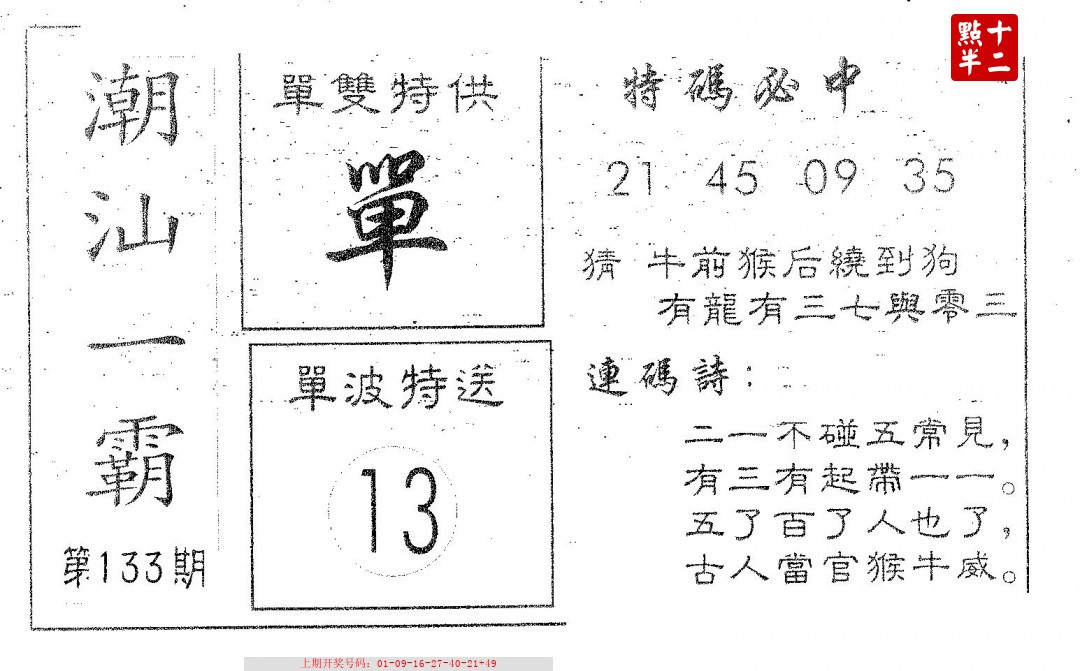 潮汕一霸
第133期
單雙特供
單
單波特送
13
十二
點半
特碼必中
21 45 09 35
猜 牛前猴后繞到狗
有龍有三七與零三
連碼詩：
二一不碰五常見，
有三有起帶一一。
五了百了人也了，
古人當官猴牛威。
上期开奖号码：01-09-16-27-40-21+49